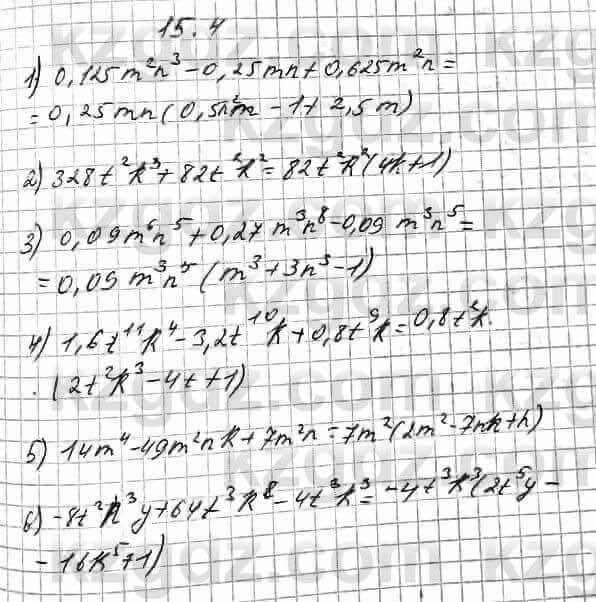 15.4
1) 0,125m²n³ - 0,25mn + 0,625m²n =
= 0,25mn (0,5n²m - 1 + 2,5m)
2) 328t²k³ + 82t²k² = 82t²k² (4k + 1)
3) 0,09m⁶n⁵ + 0,27 m³n⁸ - 0,09 m³n⁵ =
= 0,09 m³n⁵ (m³ + 3n³ - 1)
4) 1,6t¹¹k⁴ - 3,2t¹⁰k + 0,8t⁹k = 0,8t⁹k.
. (2t²k³ - 4t + 1)
5) 14m⁴ - 49m²nk + 7m²n = 7m² (2m² - 7nk + n)
6) -8t²k³y + 64t³k⁸ - 4t³k³ = -4t³k³ (2t⁵y -
- 16k⁵ + 1)